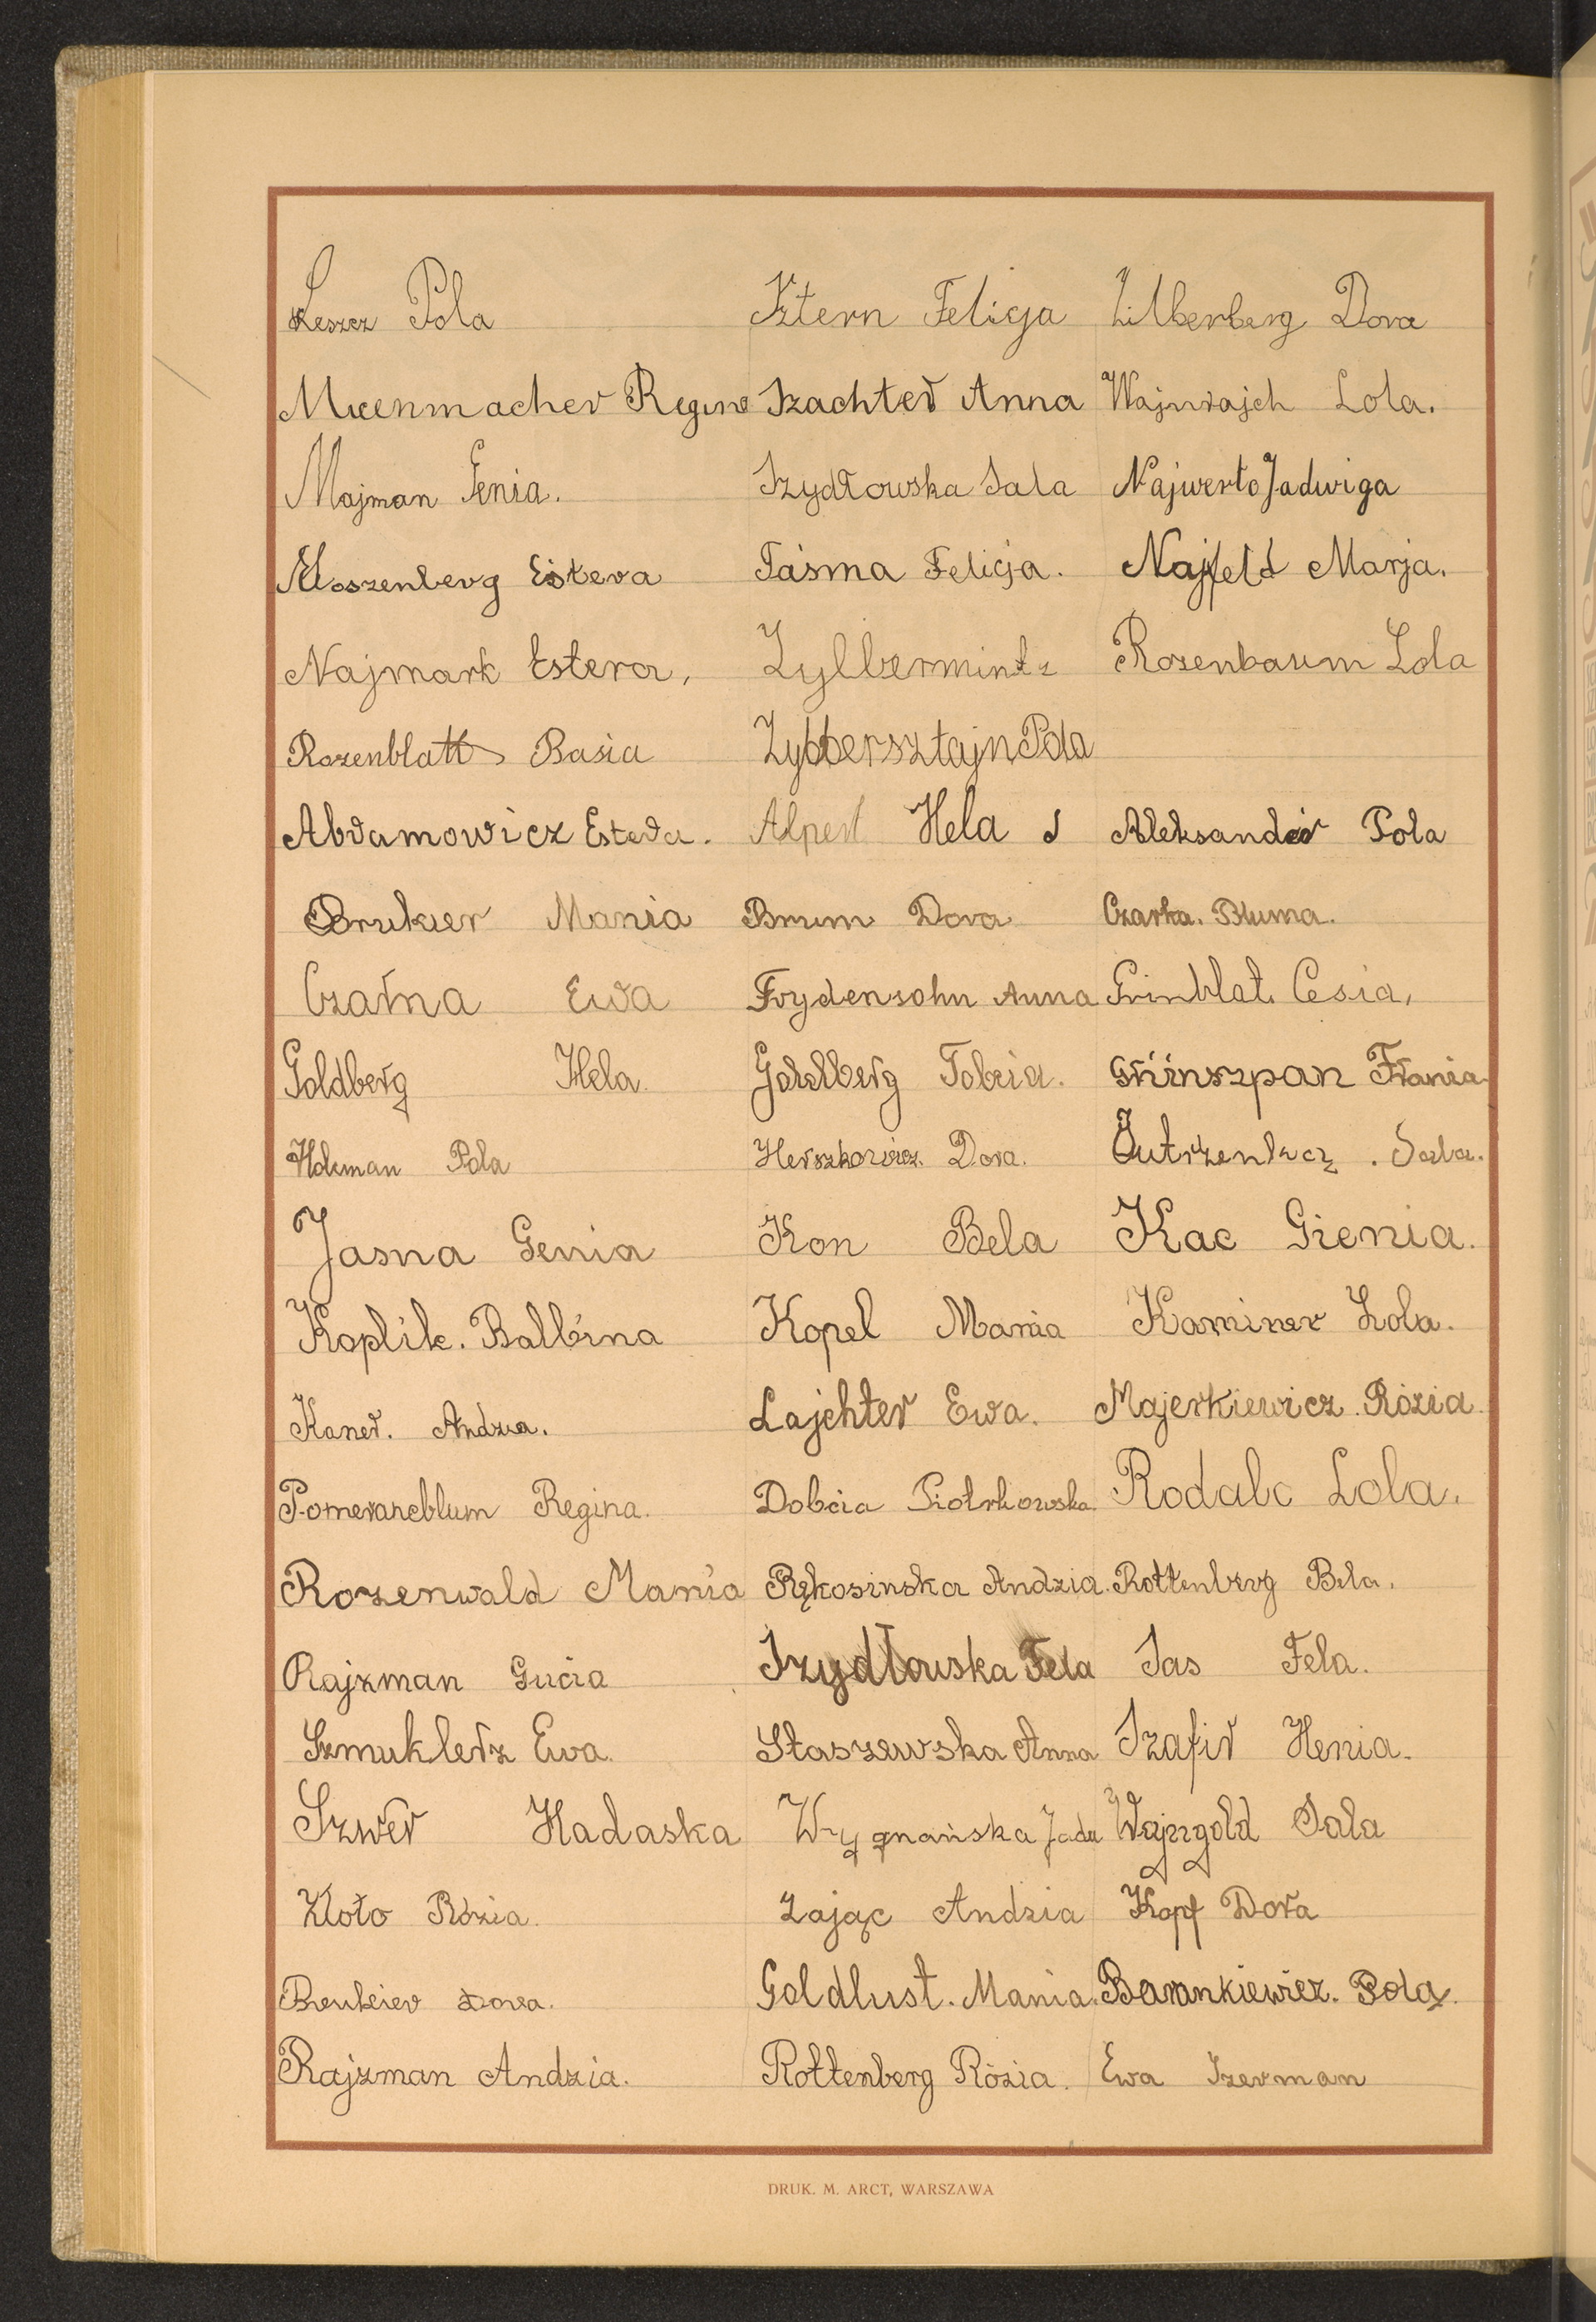 Leszcz Pola Sztern Felicja Zilberberg Dora
Regina Szachter Anna Wajnrajch Lola.
Majman Genia. Szydłowska Sala Najwerto Jadwiga
Moszenberg Estera Taśma Felicja. Najfeld Marja.
Najmark Estera, Zylbermintz Rozenbaum Lola
Rozenblatt Basia Zylbersztajn Pola
Abramowicz Estera. Alpert Hela Aleksander Pola
Brukier Mania Brum Dora Czarka. Bluma.
Czarna Ewa Frydensohn Anna Grinblat. Cesia,
Goldberg Hela. Goldberg Tobcia. Grinszpan Frania
Holcman Pola Herszkowicz. Dora. Sala.
Jasna Genia Kon Bela Kac Gienia.
Koplik. Balbina Kopel Mania Kaminer Lola.
Kaner. Andzia. Lajchter Ewa. Majerkiewicz Rózia.
Pomerancblum Regina. Dobcia Piotrkowska Rodalc Lola.
Rozenwald Mania Rękosinska Andzia. Rottenberg Bela.
Rajzman Gucia Szydłowska Fela Sas Fela.
Szmuklerz Ewa. Staszewska Anna Szafir Henia.
Szwer Hadaska Wygnańska Jadu Wajzgold Sala
Złoto Rózia. Zając Andzia Kopf Dora
Brukier Dora. Goldlust. Mania. Barankiewicz. Pola.
Rajzman Andzia. Rottenberg Rózia. Ewa Szerman
DRUK. M. ARCT, WARSZAWA